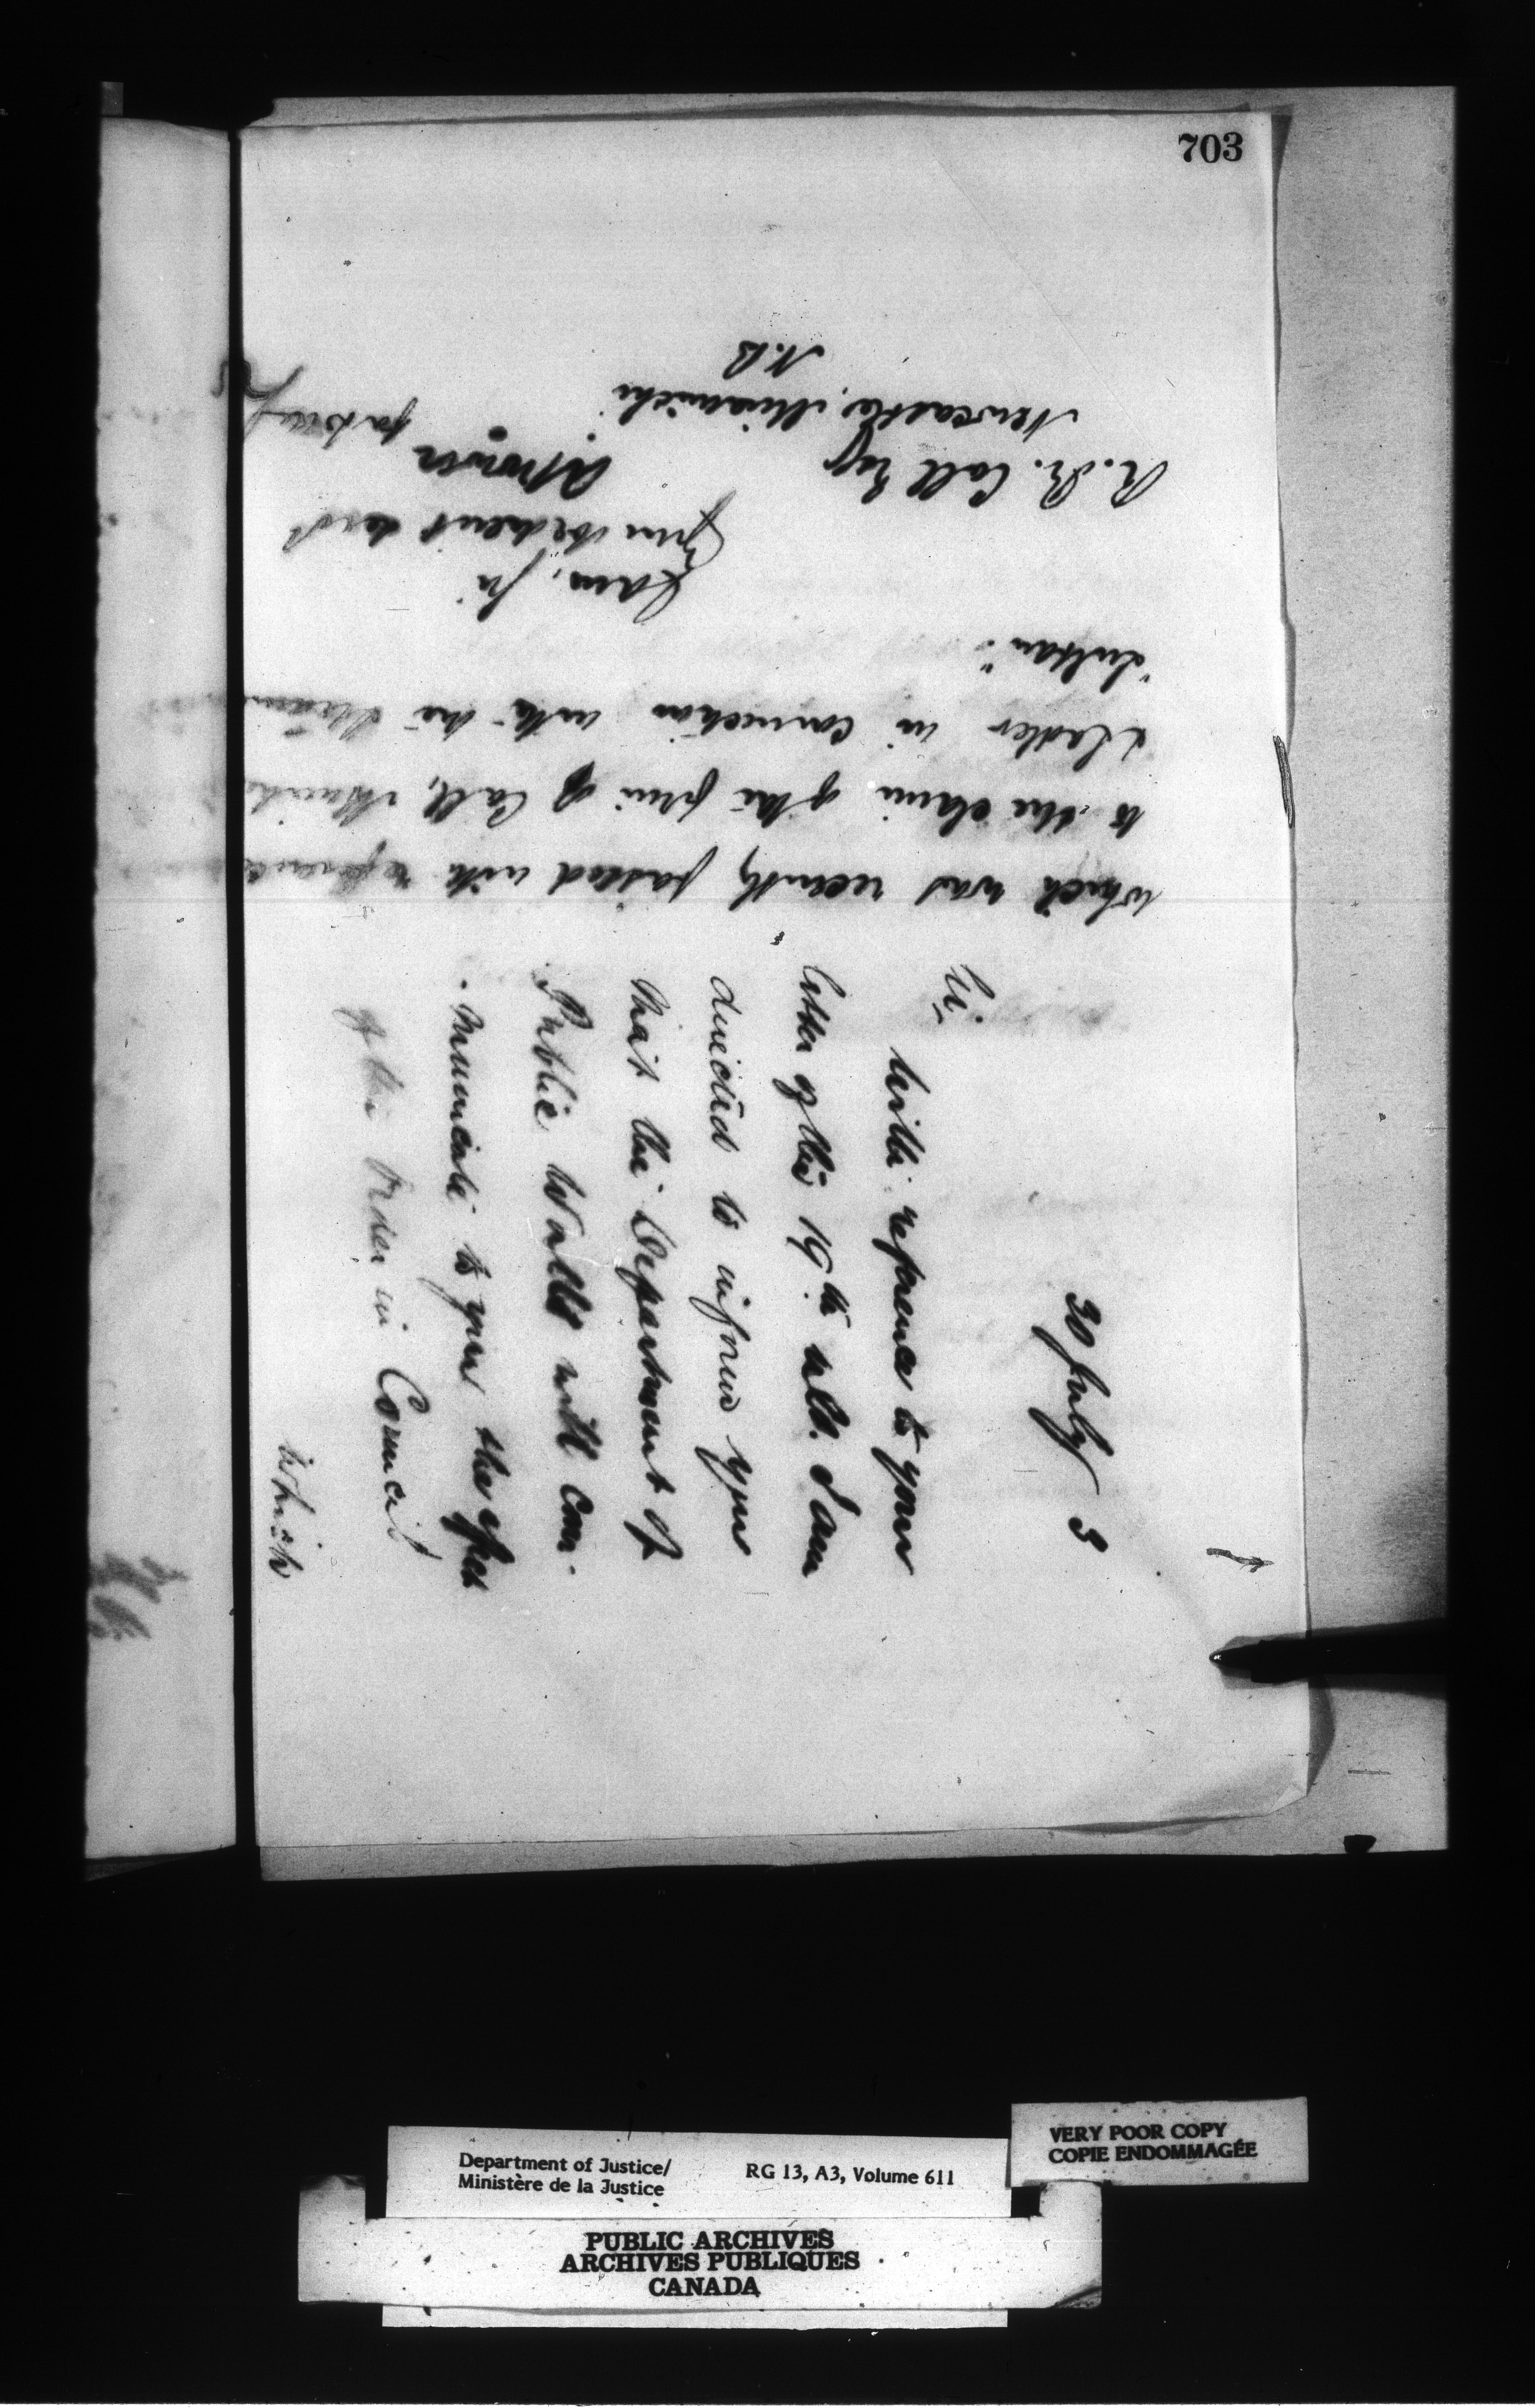 703
30 July 3
Sir,
With reference to your
letter of the 19th ult. I am
directed to inform you
that the Department of
Public Works will com-
municate to you the effect
of the Order in Council
which
which was recently passed with reference
to the claim of the firm of Call,
& Sadler in connection with the Steamer
"Sultan".
I am, Sir
Your obedient servt
R. R. Call Esq
Newcastle, Miramichi
N.B
Department of Justice/
Ministère de la Justice
RG 13, A3, Volume 611
VERY POOR COPY
COPIE ENDOMMAGÉE
PUBLIC ARCHIVES
ARCHIVES PUBLIQUES
CANADA